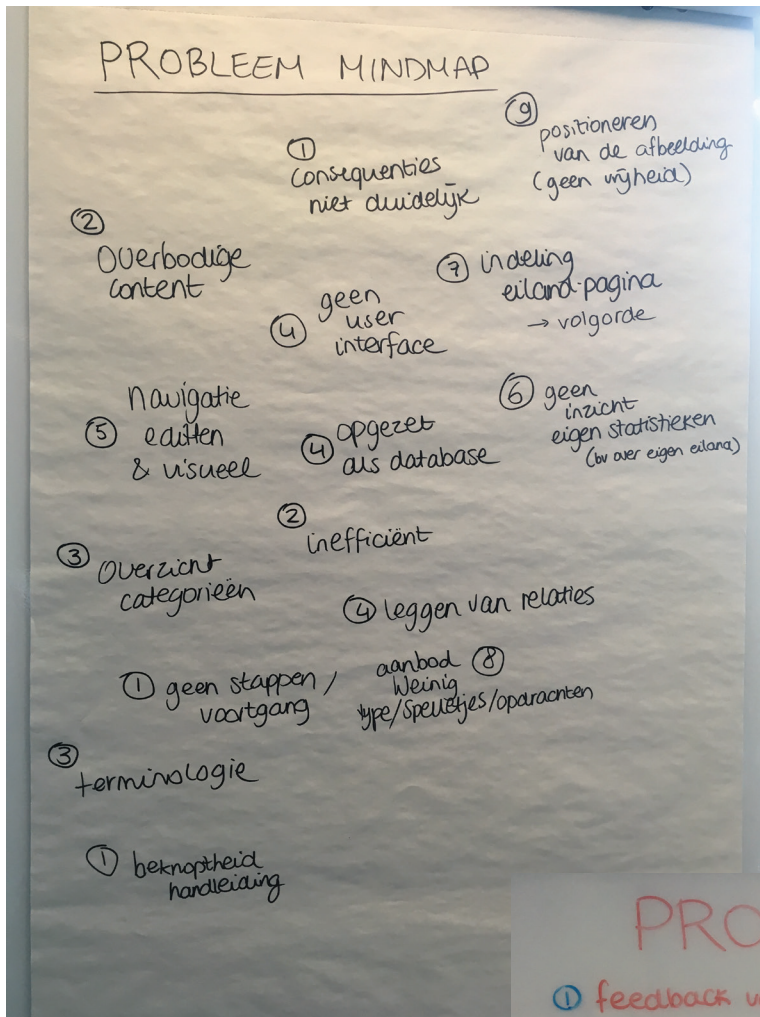 PROBLEEM MINDMAP
⑨
positioneren
van de afbeelding
(geen vrijheid)
①
Consequenties
niet duidelijk
②
Overbodige
content
⑦ indeling
eiland-pagina
→ volgorde
geen
④ user
interface
⑥ geen
inzicht
eigen statistieken
(bv over eigen eiland)
navigatie
⑤ editten
& visueel
④ opgezet
als database
②
inefficiënt
③ Overzicht
categorieën
④ leggen van relaties
① geen stappen /
voortgang
aanbod ⑧
Weinig
type/Spelletjes/opdrachten
③
terminologie
① beknoptheid
handleiding
PRO
① feedback